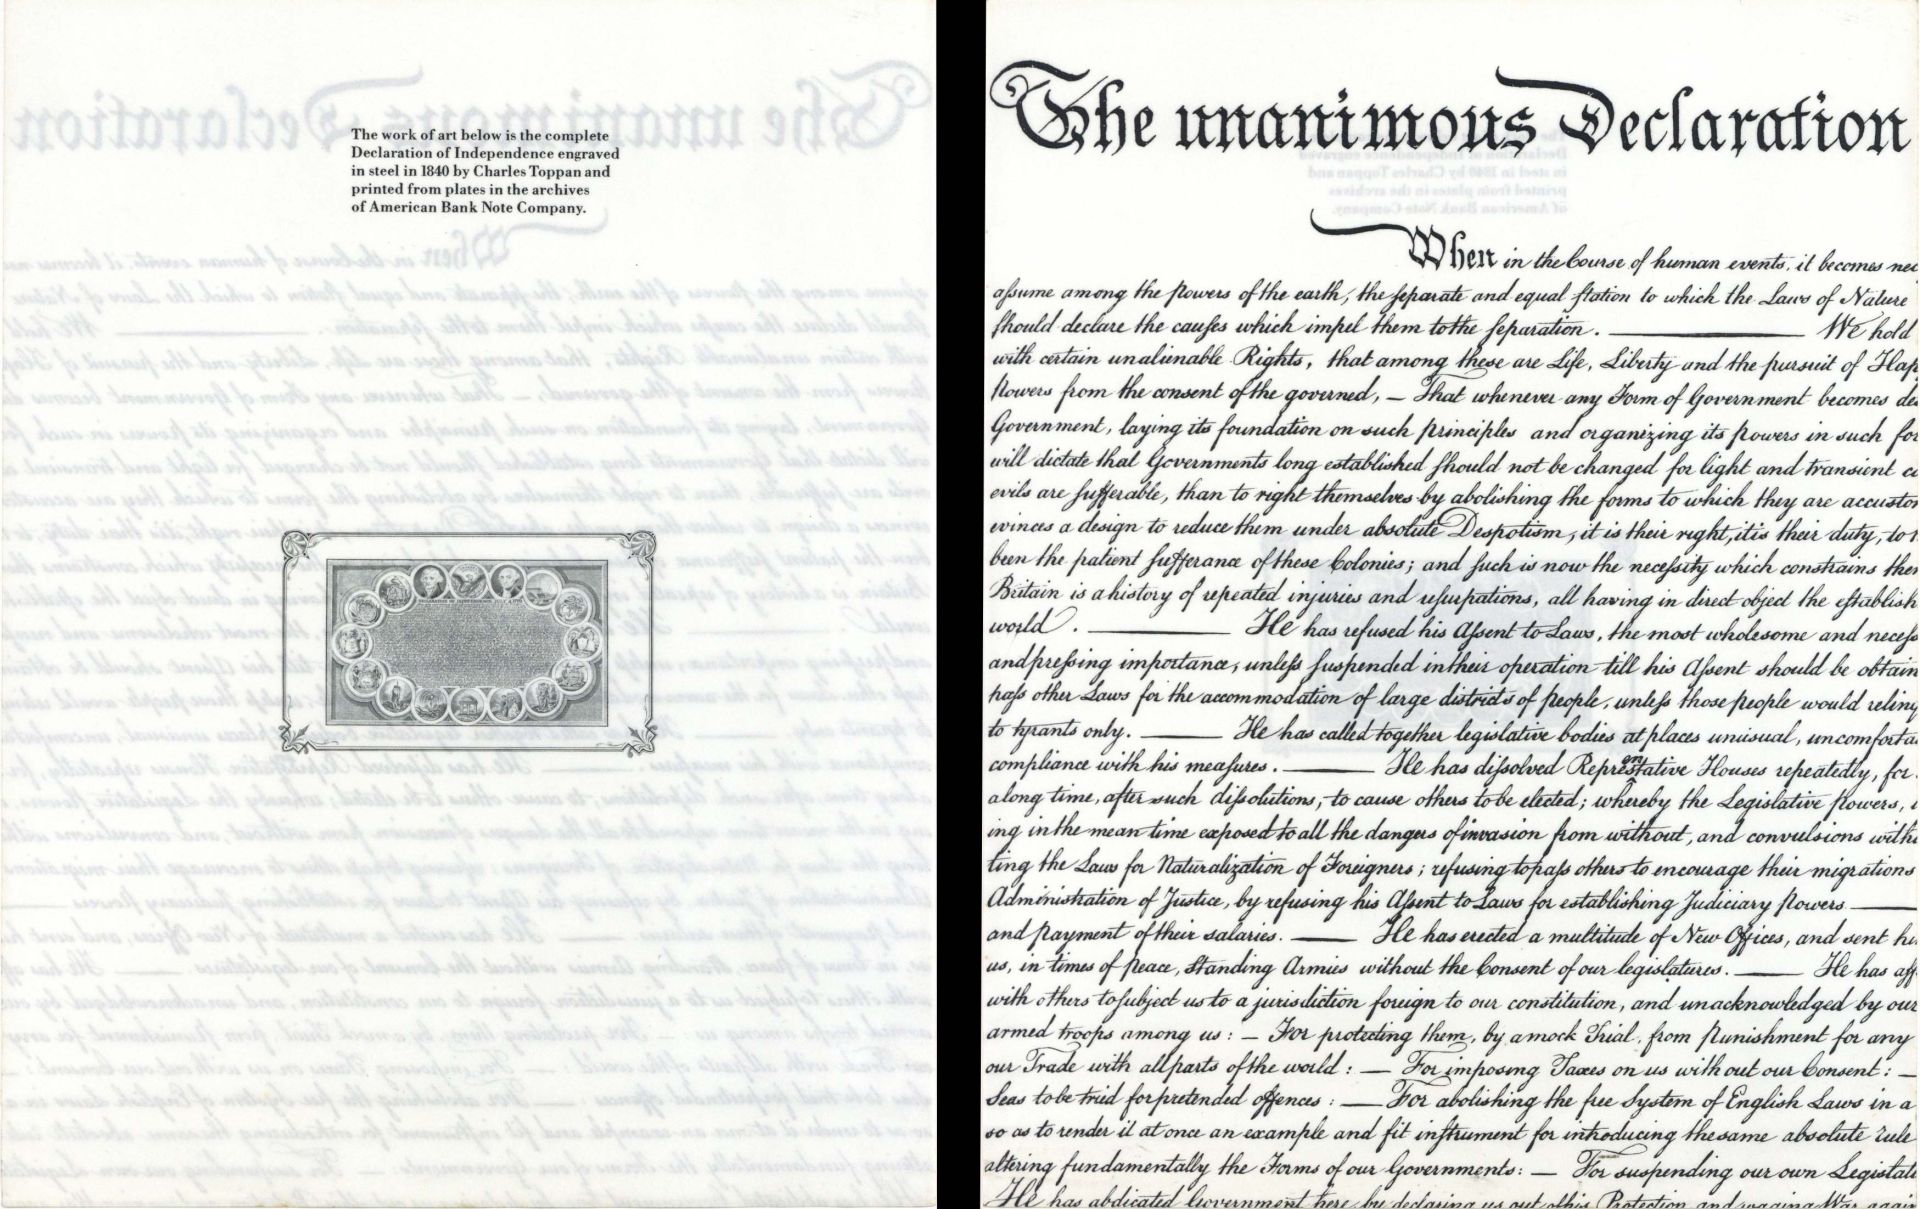 The work of art below is the complete
Declaration of Independence engraved
in steel in 1840 by Charles Toppan and
printed from plates in the archives
of American Bank Note Company.
DECLARATION OF INDEPENDENCE, JULY 4, 1776.
The unanimous Declaration
When in the Course of human events, it becomes nec
aſsume among the powers of the earth, the ſeparate and equal ſtation to which the Laws of Nature
ſhould declare the cauſes which impel them to the ſeparation. ——— We hold
with certain unalienable Rights, that among these are Life, Liberty and the pursuit of Hap
powers from the consent of the governed, — That whenever any Form of Government becomes des
Government, laying its foundation on such principles and organizing its powers in such for
will dictate that Governments long established ſhould not be changed for light and transient ca
evils are ſufferable, than to right themselves by abolishing the forms to which they are accustom
evinces a design to reduce them under absolute Despotism, it is their right, it is their duty, to t
been the patient ſufferance of these Colonies; and ſuch is now the neceſsity which constrains them
Britain is a history of repeated injuries and uſurpations, all having in direct object the eſtablish
world. ——— He has refused his Aſsent to Laws, the most wholesome and neceſs
and preſsing importance, unleſs ſuspended in their operation till his Aſsent should be obtain
paſs other Laws for the accommodation of large districts of people, unleſs those people would relinq
to tyrants only. ——— He has called together legislative bodies at places unusual, uncomforta
compliance with his meaſures. ——— He has diſsolved Representative Houses repeatedly, for
a long time, after such diſsolutions, to cause others to be elected; whereby the Legislative powers, i
ing in the mean time exposed to all the dangers of invasion from without, and convulsions withi
ting the Laws for Naturalization of Foreigners; refusing to paſs others to encourage their migrations
Administration of Justice, by refusing his Aſsent to Laws for establishing Judiciary powers ———
and payment of their salaries. ——— He has erected a multitude of New Offices, and sent hi
us, in times of peace, Standing Armies without the Consent of our legislatures. ——— He has aff
with others to ſubject us to a jurisdiction foreign to our constitution, and unacknowledged by our
armed troops among us: — For protecting them, by a mock Trial, from punishment for any
our Trade with all parts of the world: — For imposing Taxes on us without our Consent: —
Seas to be tried for pretended offences: — For abolishing the free System of English Laws in a
so as to render it at once an example and fit inſtrument for introducing the same absolute rule
altering fundamentally the Forms of our Governments: — For suspending our own Legislatu
He has abdicated Government here, by declaring us out of his Protection and waging War again